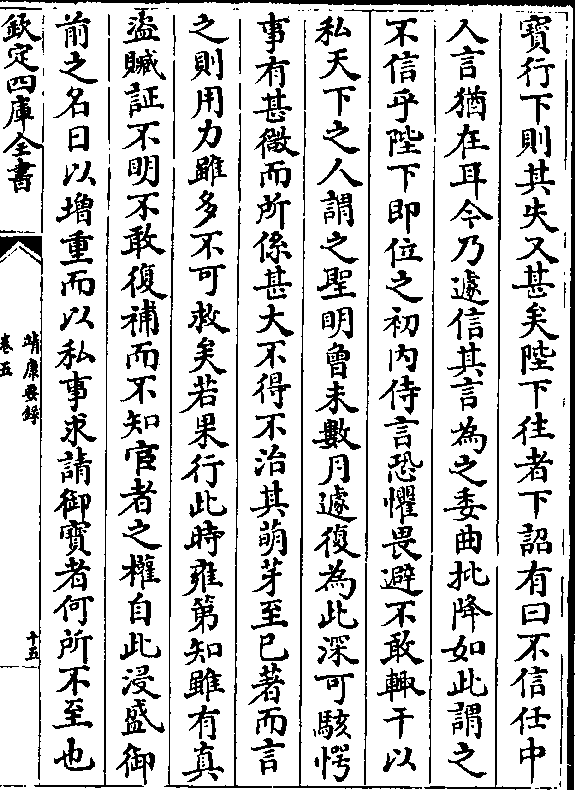 寶行下則其失又甚矣陛下往者下詔有曰不信任中
人言猶在耳今乃遽信其言為之委曲批降如此謂之
不信乎陛下即位之初内侍言恐懼畏避不敢輙干以
私天下之人謂之聖明曾未數月遽復為此深可駭愕
事有甚微而所係甚大不得不治其萌芽至已著而言
之則用力雖多不可救矣若果行此時雍第知雖有真
盗贓証不明不敢復補而不知宦者之權自此浸盛御
前之名日以増重而以私事求請御寶者何所不至也
欽定四庫全書
靖康要錄
卷五
十五